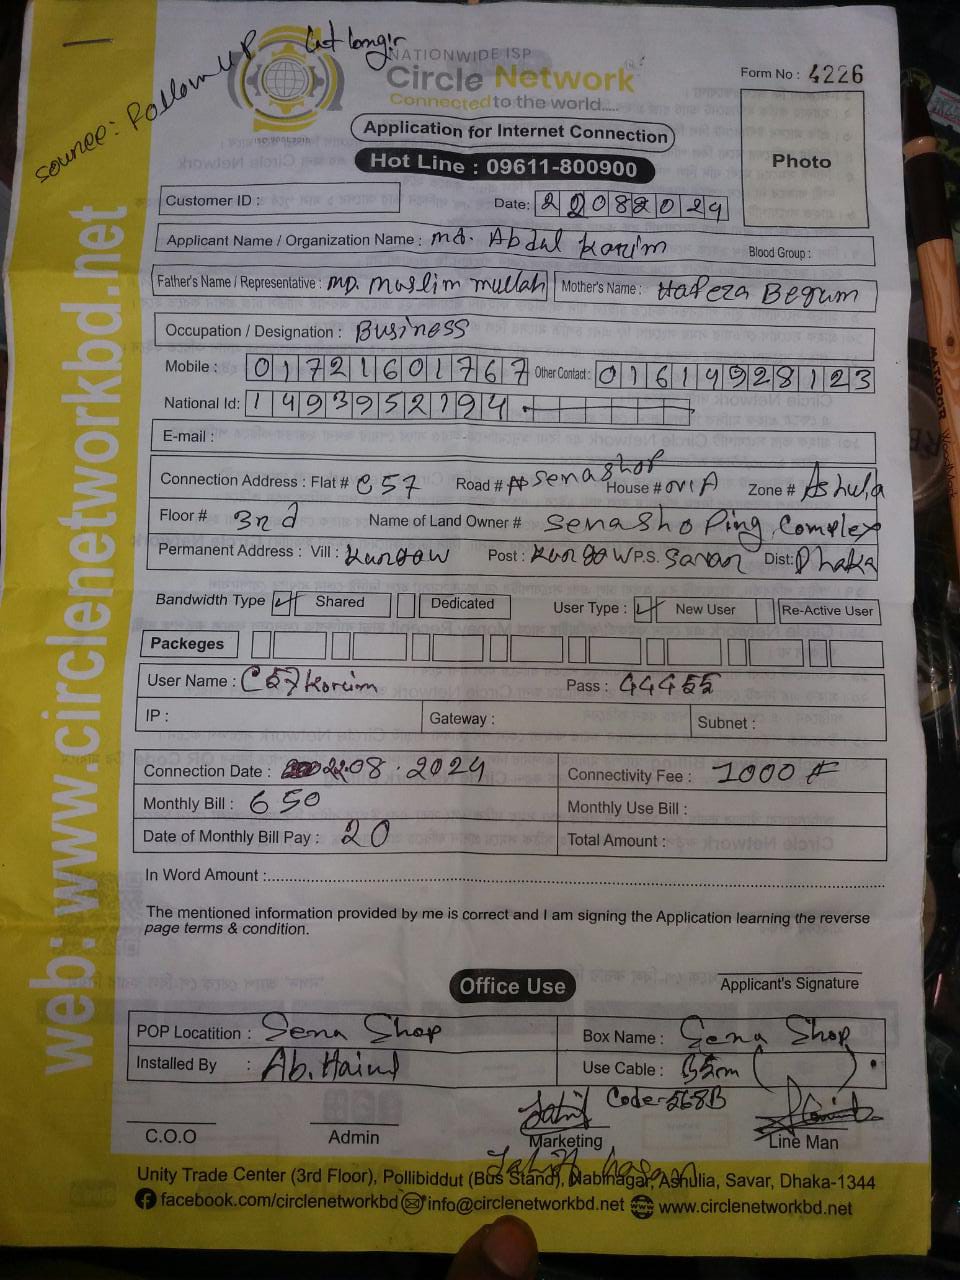 source: Follow UP
NATIONWIDE ISP
Circle Network
Connected to the world.....
ISO 9001:2015
Form No : 4226
Application for Internet Connection
Hot Line : 09611-800900
Photo
Customer ID :
Date: 22082024
Applicant Name / Organization Name : md. Abdul Karim
Blood Group :
Father's Name / Representative : MD. Muslim mullah Mother's Name : Hafeza Begum
Occupation / Designation : Business
Mobile : 01721601767 Other Contact : 01614928123
National Id: 1493952194
E-mail :
Connection Address : Flat # C57 Road # senashop House # Zone # Ashulia
Floor # 3rd Name of Land Owner # Senashoping Complex
Permanent Address : Vill : Kurgow Post : Kurgow P.S. Savar Dist: Dhaka
Bandwidth Type Shared Dedicated User Type : New User Re-Active User
Packeges
User Name : C57Karim Pass : 44455
IP : Gateway : Subnet :
Connection Date : 22.08.2024 Connectivity Fee : 1000
Monthly Bill : 650 Monthly Use Bill :
Date of Monthly Bill Pay : 20 Total Amount :
In Word Amount :
The mentioned information provided by me is correct and I am signing the Application learning the reverse
page terms & condition.
Applicant's Signature
Office Use
POP Locatition : Sena Shop Box Name : Sena Shop
Installed By : Use Cable :
Code-568B
C.O.O Admin Marketing Line Man
Unity Trade Center (3rd Floor), Pollibiddut (Bus Stand), Nabinagar, Ashulia, Savar, Dhaka-1344
facebook.com/circlenetworkbd info@circlenetworkbd.net www.circlenetworkbd.net
web: www.circlenetworkbd.net